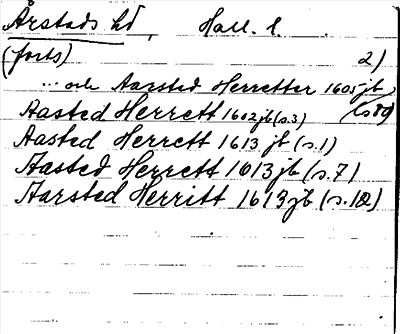 Årstads hd, Hall. l.
(forts) 2)
... och Aarsted Herretter 1605 jb
Aasted Herrett 1602 jb (s.3) (s 89)
Aasted Herrett 1613 jb (s.1)
Aasted Herrett 1613 jb (s.7)
Aarsted Herritt 1619 jb (s.12)